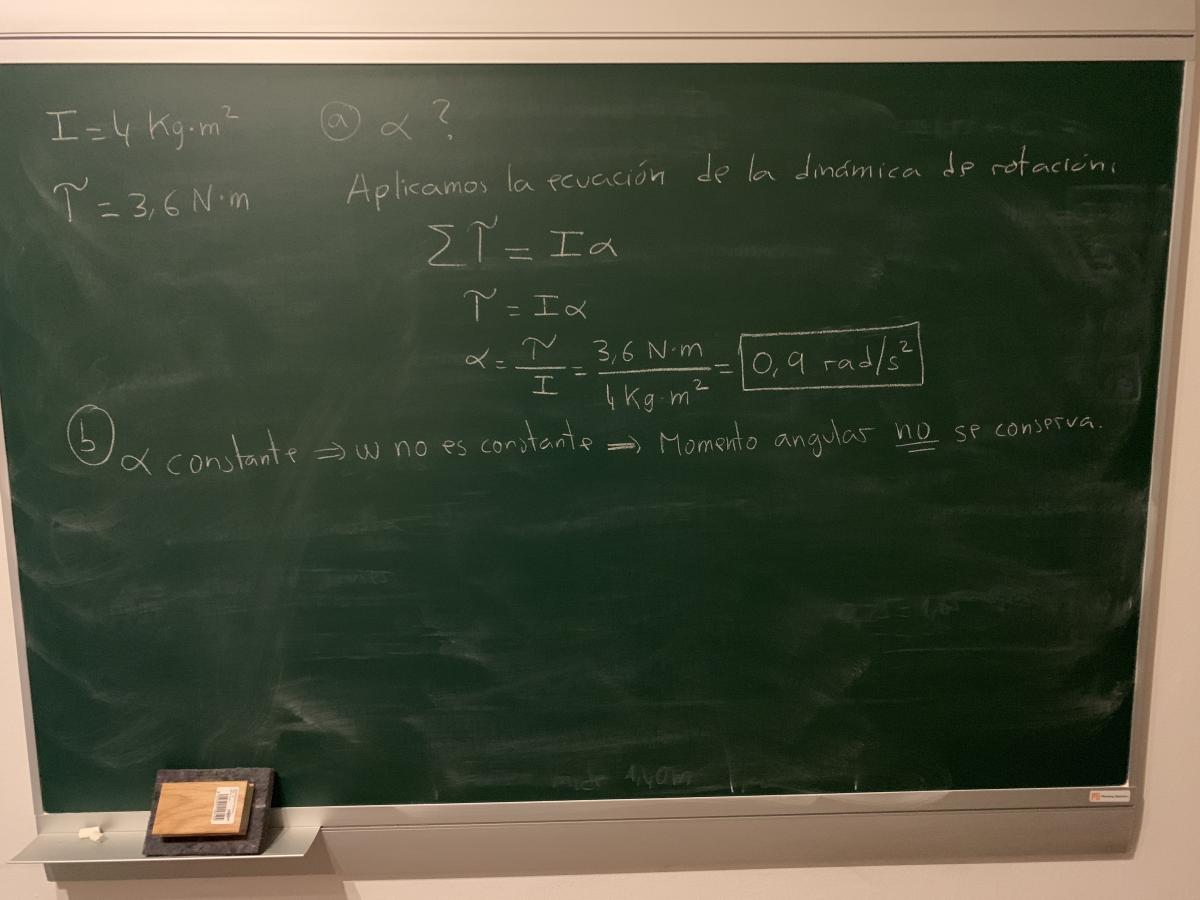 I = 4 Kg·m²
τ = 3,6 N·m
ⓐ α ?
Aplicamos la ecuación de la dinámica de rotación:
Στ = Iα
τ = Iα
α = τ/I = 3,6 N·m / 4 Kg·m² = 0,9 rad/s²
ⓑ α constante ⇒ ω no es constante ⇒ Momento angular no se conserva.